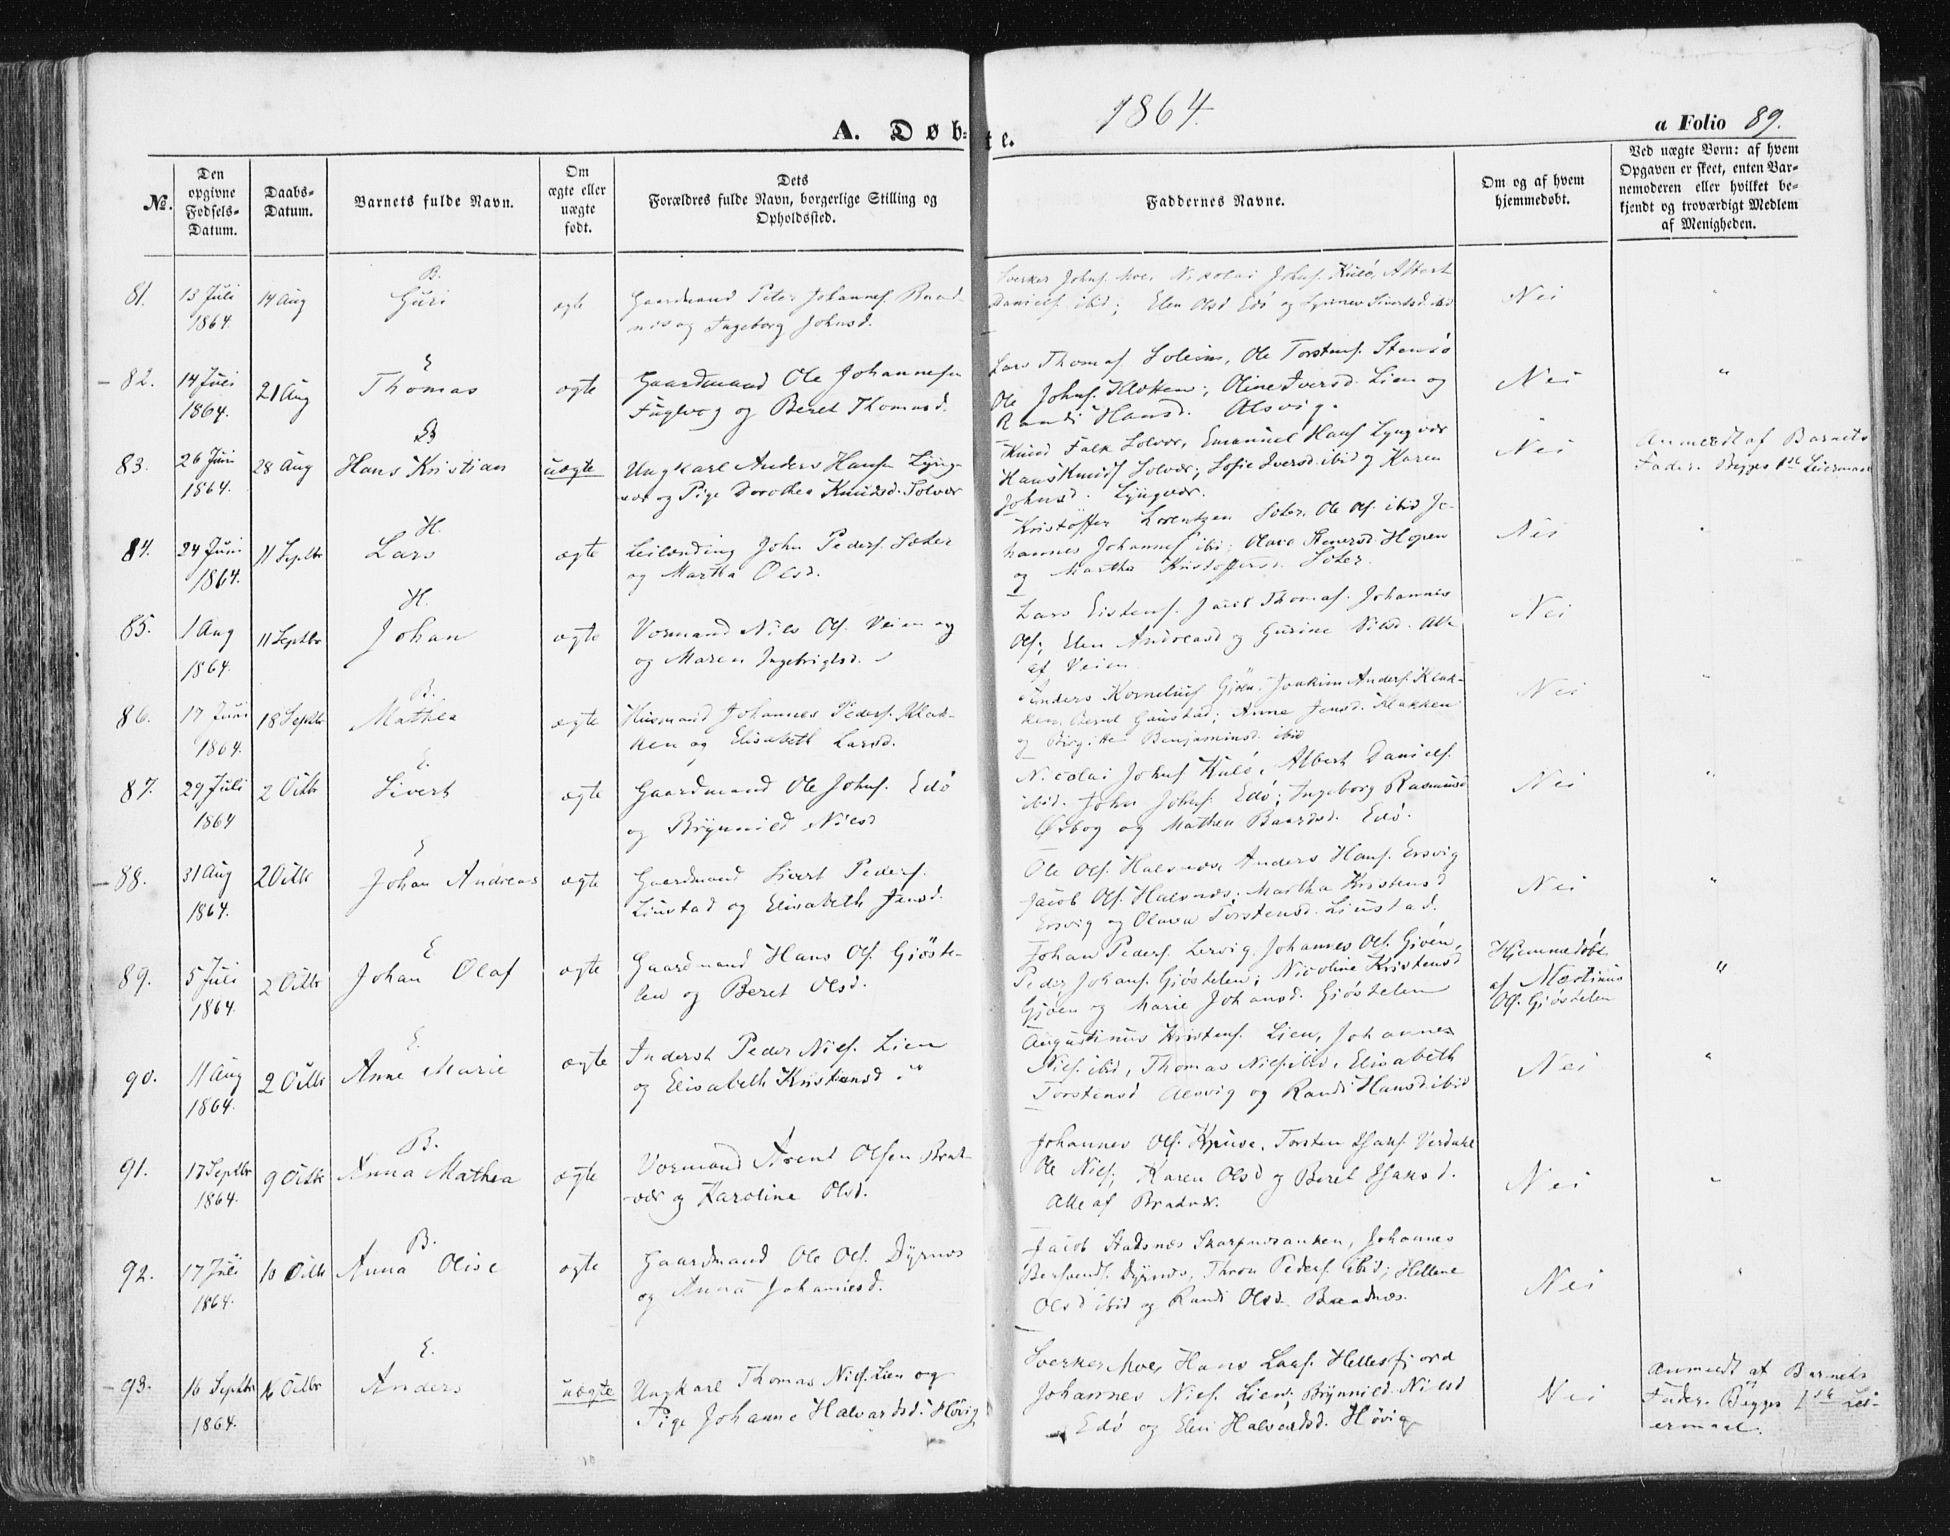 1864.
A. Døbte.
a Folio 89.
№.
Den opgivne Fødsels-Datum.
Daabs-Datum.
Barnets fulde Navn.
Om ægte eller uægte født.
Dets Forældres fulde Navn, borgerlige Stilling og Opholdssted.
Faddernes Navne.
Om og af hvem hjemmedøbt.
Ved uægte Børn: af hvem Opgaven er skeet, enten Barnemoderen eller hvilket bekjendt og troværdigt Medlem af Menigheden.
81. 13 Juli 1864. 14 Aug B. Guri ægte
Gaardmand Peter Johannes.
og Ingeborg Johnsd.
Sverker Johns. Moe, Nikolai Johns. Kulø, Albert
Daniels. ibid; Elen Olsd Edø og Sivertsd. ibid
Nei "
82. 14 Juli 1864. 21 Aug E Thomas ægte
Gaardmand Ole Johannesen
Fuglvog og Beret Thomasd.
Lars Thomas. Soleim, Ole Torstens. Stensø
Ole Johns. Klokken; Oline Iversd. Lien og
Randi Hansd. Alsvig.
Nei "
83. 26 Juni 1864. 28 Aug B Hans Kristian uægte
Ungkarl Anders Hansen Lyng-
vær og Pige Dorothea Knudsd. Solvær
Knud Falk Solvær, Emanuel Hans. Lyngvær
Hans Knuds. Solvær; Sofie Iversd. ibid og Karen
Johnsd. Lyngvær.
Nei
Anmeldt af Barnets
Fader. Begges 1ste Leiermaal
84. 24 Juni 1864. 11 Septbr H. Lars ægte
Leilænding John Peders. Sæter
og Martha Olsd.
Kristoffer Lorentzen Sæter, Ole Ols. ibid Jo-
hannes Johannes. ibi; Olava Stenersd. Hopen
og Martha Kristoffersd. Sæter.
Nei "
85. 1 Aug 1864. 11 Septbr H. Johan ægte
Vormand Nils Ols. Veien og
og Maren Ingebrigtsd.
Lars Eistens. Jacob Thomas. Johannes
Ols; Elen Andreasd og Gurine Nilsd. Alle
af Veien.
Nei
86. 17 Juni 1864. 18 Septbr B. Mathea ægte
Husmand Johannes Peders. Klak-
ken og Elisabeth Larsd.
Anders Kornelius. Gjøen, Joakim Anders. Klak-
ken, Bernt Gaustad; Anne Jensd. Klakken
og Birgitte Benjaminsd. ibid
Nei "
87. 29 Juli 1864 2 Octbr E. Sivert ægte
Gaardmand Ole Johns. Edø
og Brynnild Nilsd
Nicolai Johns Kulø, Albert Daniels.
ibid. John Johns. Edø; Ingeborg Rasmusd
Ørbog og Mathea Baardsd. Edø.
Nei "
88. 31 Aug 1864. 2 Octbr E Johan Andreas ægte
Gaardmand Sivert Peders.
Liustad og Elisabeth Jensd.
Ole Ols. Halsnæs, Anders Hans. Ersvig
Jacob Ols. Halsnæs; Martha Kristensd
Ersvig og Olava Torstensd. Liustad.
Nei "
89. 5 Juli 1864. 2 Octbr E Johan Olaf ægte
Gaardmand Hans Ols. Gjøste-
len og Beret Olsd.
Johan Peders. Lervig, Johannes Ols. Gjøen,
Peder Johans. Gjøstelen; Nicoline Kristensd
Gjøen og Marie Johansd. Gjøstelen
Hjemmedøbt
af Martinus
Ols. Gjøstelen
"
90. 11 Aug 1864. 2 Octbr E. Anne Marie ægte
Inderst Peder Niels. Lien
og Elisabeth Kristensd.
Augustinus Kristens. Lien, Johannes
Niels. ibid, Thomas Niels. ibid, Elisabeth
Torstensd Alsvig og Randi Hansd. ibid
Nei "
91. 17 Septbr 1864. 9 Octbr B. Anna Mathea ægte
Vormand Arent Olsen Brat-
vær og Karoline Olsd.
Johannes Ols. Torsten Esaks.
Ole Niels; Karen Olsd og Beret Esaksd.
Alle af Bratvær.
Nei "
92. 17 Juli 1864. 10 Octbr B. Anna Olise ægte
Gaardmand Ole Ols. Dyrnæs
og Anna Johannesd.
Jacob Stadsnæs Skarpnæsauken, Johannes
Dyrnæs, Thron Peders. ibid; Hellene
Olsd ibid og Randi Olsd. Bradnæs.
Nei "
93. 16 Septbr 1864. 16 Octbr E. Anders uægte
Ungkarl Thomas Niels. Lien og
Pige Johanne Halvardsd. Høvig
Sverker Moe, Hans Lars. Hellesfjord
Johannes Niels. Lien; Brynnild Nilsd
Edø og Elen Halvardsd. Høvig
Nei
Anmeldt af Barnets
Fader. Begges 1ste Lei-
ermaal.